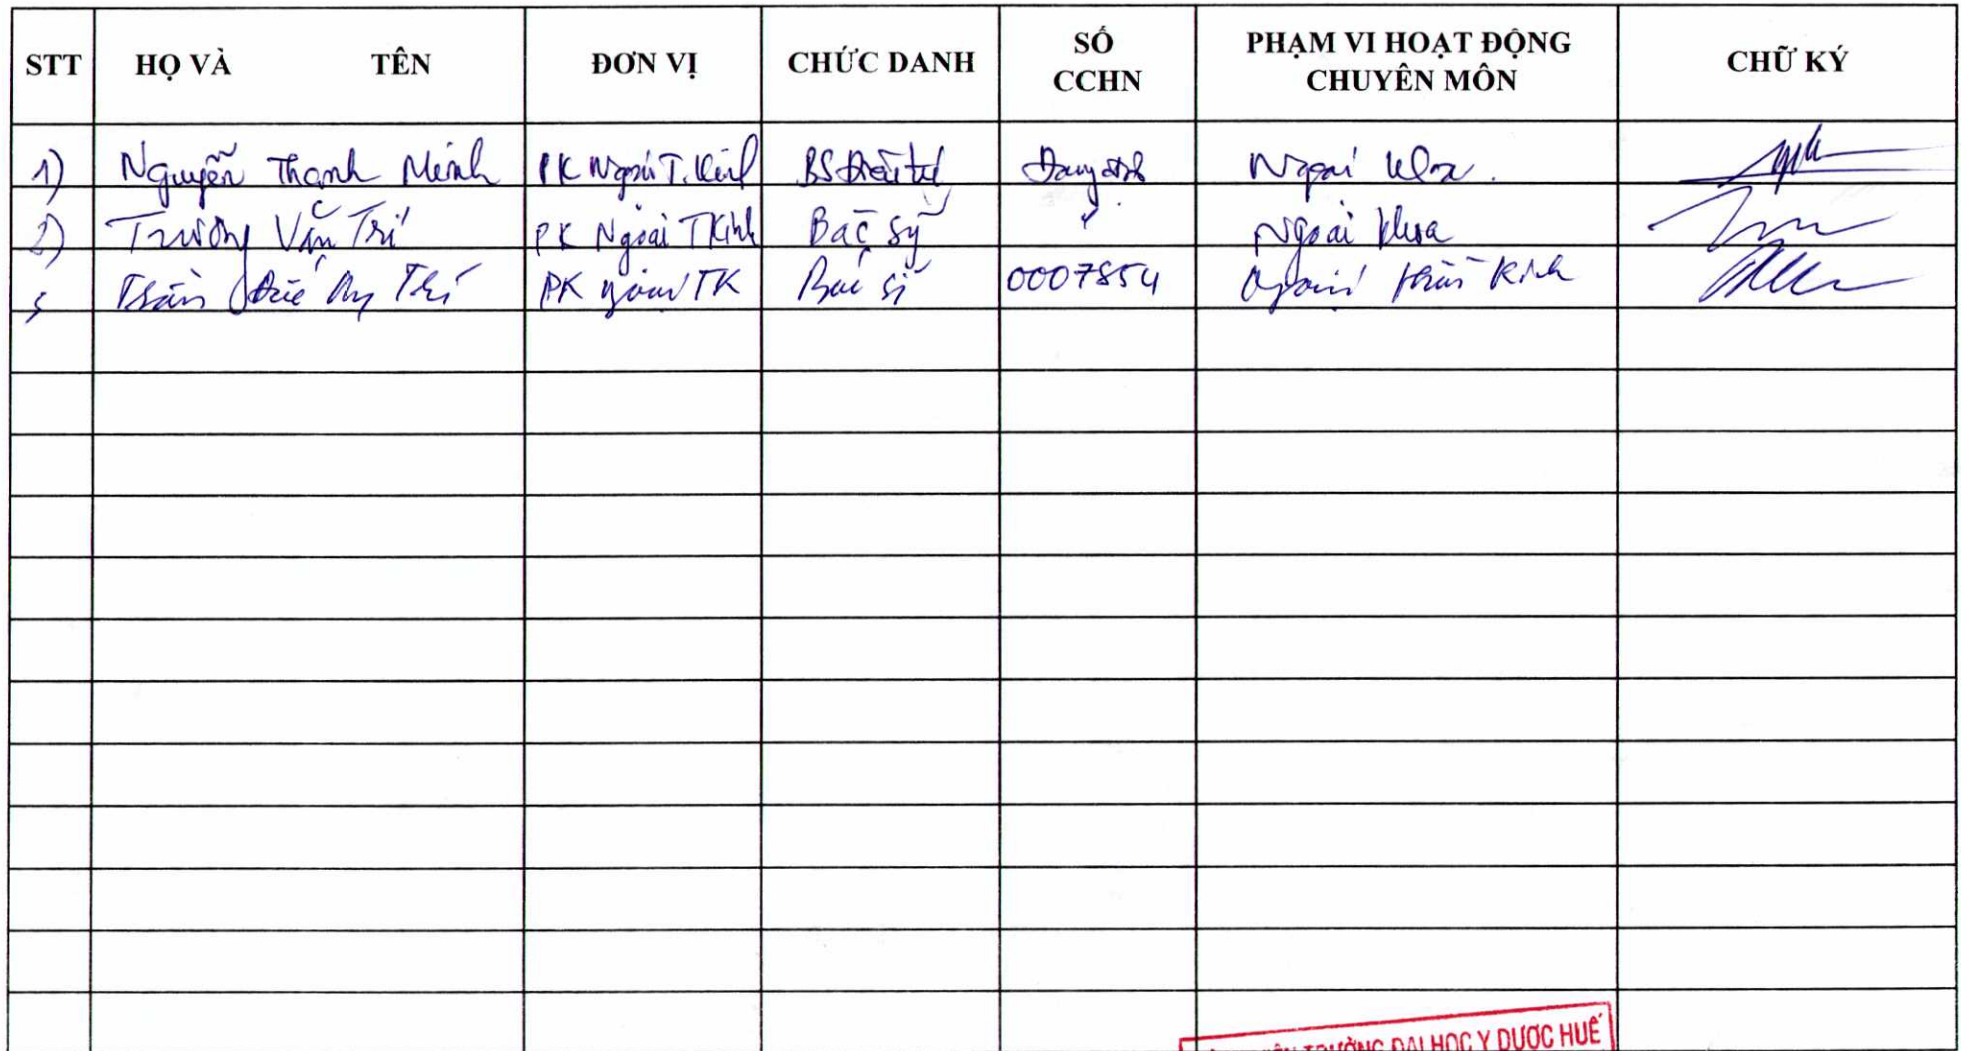 STT HỌ VÀ TÊN ĐƠN VỊ CHỨC DANH SỐ CCHN PHẠM VI HOẠT ĐỘNG CHUYÊN MÔN CHỮ KÝ
1) Nguyễn Thanh Minh PK Ngoại T.Kinh BS Ngoại khoa
2) Trương Văn Trí PK Ngoại TKinh Bác sỹ Ngoại khoa
3 Trần Đức Duy Trí PK Ngoại TK Bác sĩ 0007854 Ngoại thần kinh
TRƯỜNG ĐẠI HỌC Y DƯỢC HUẾ